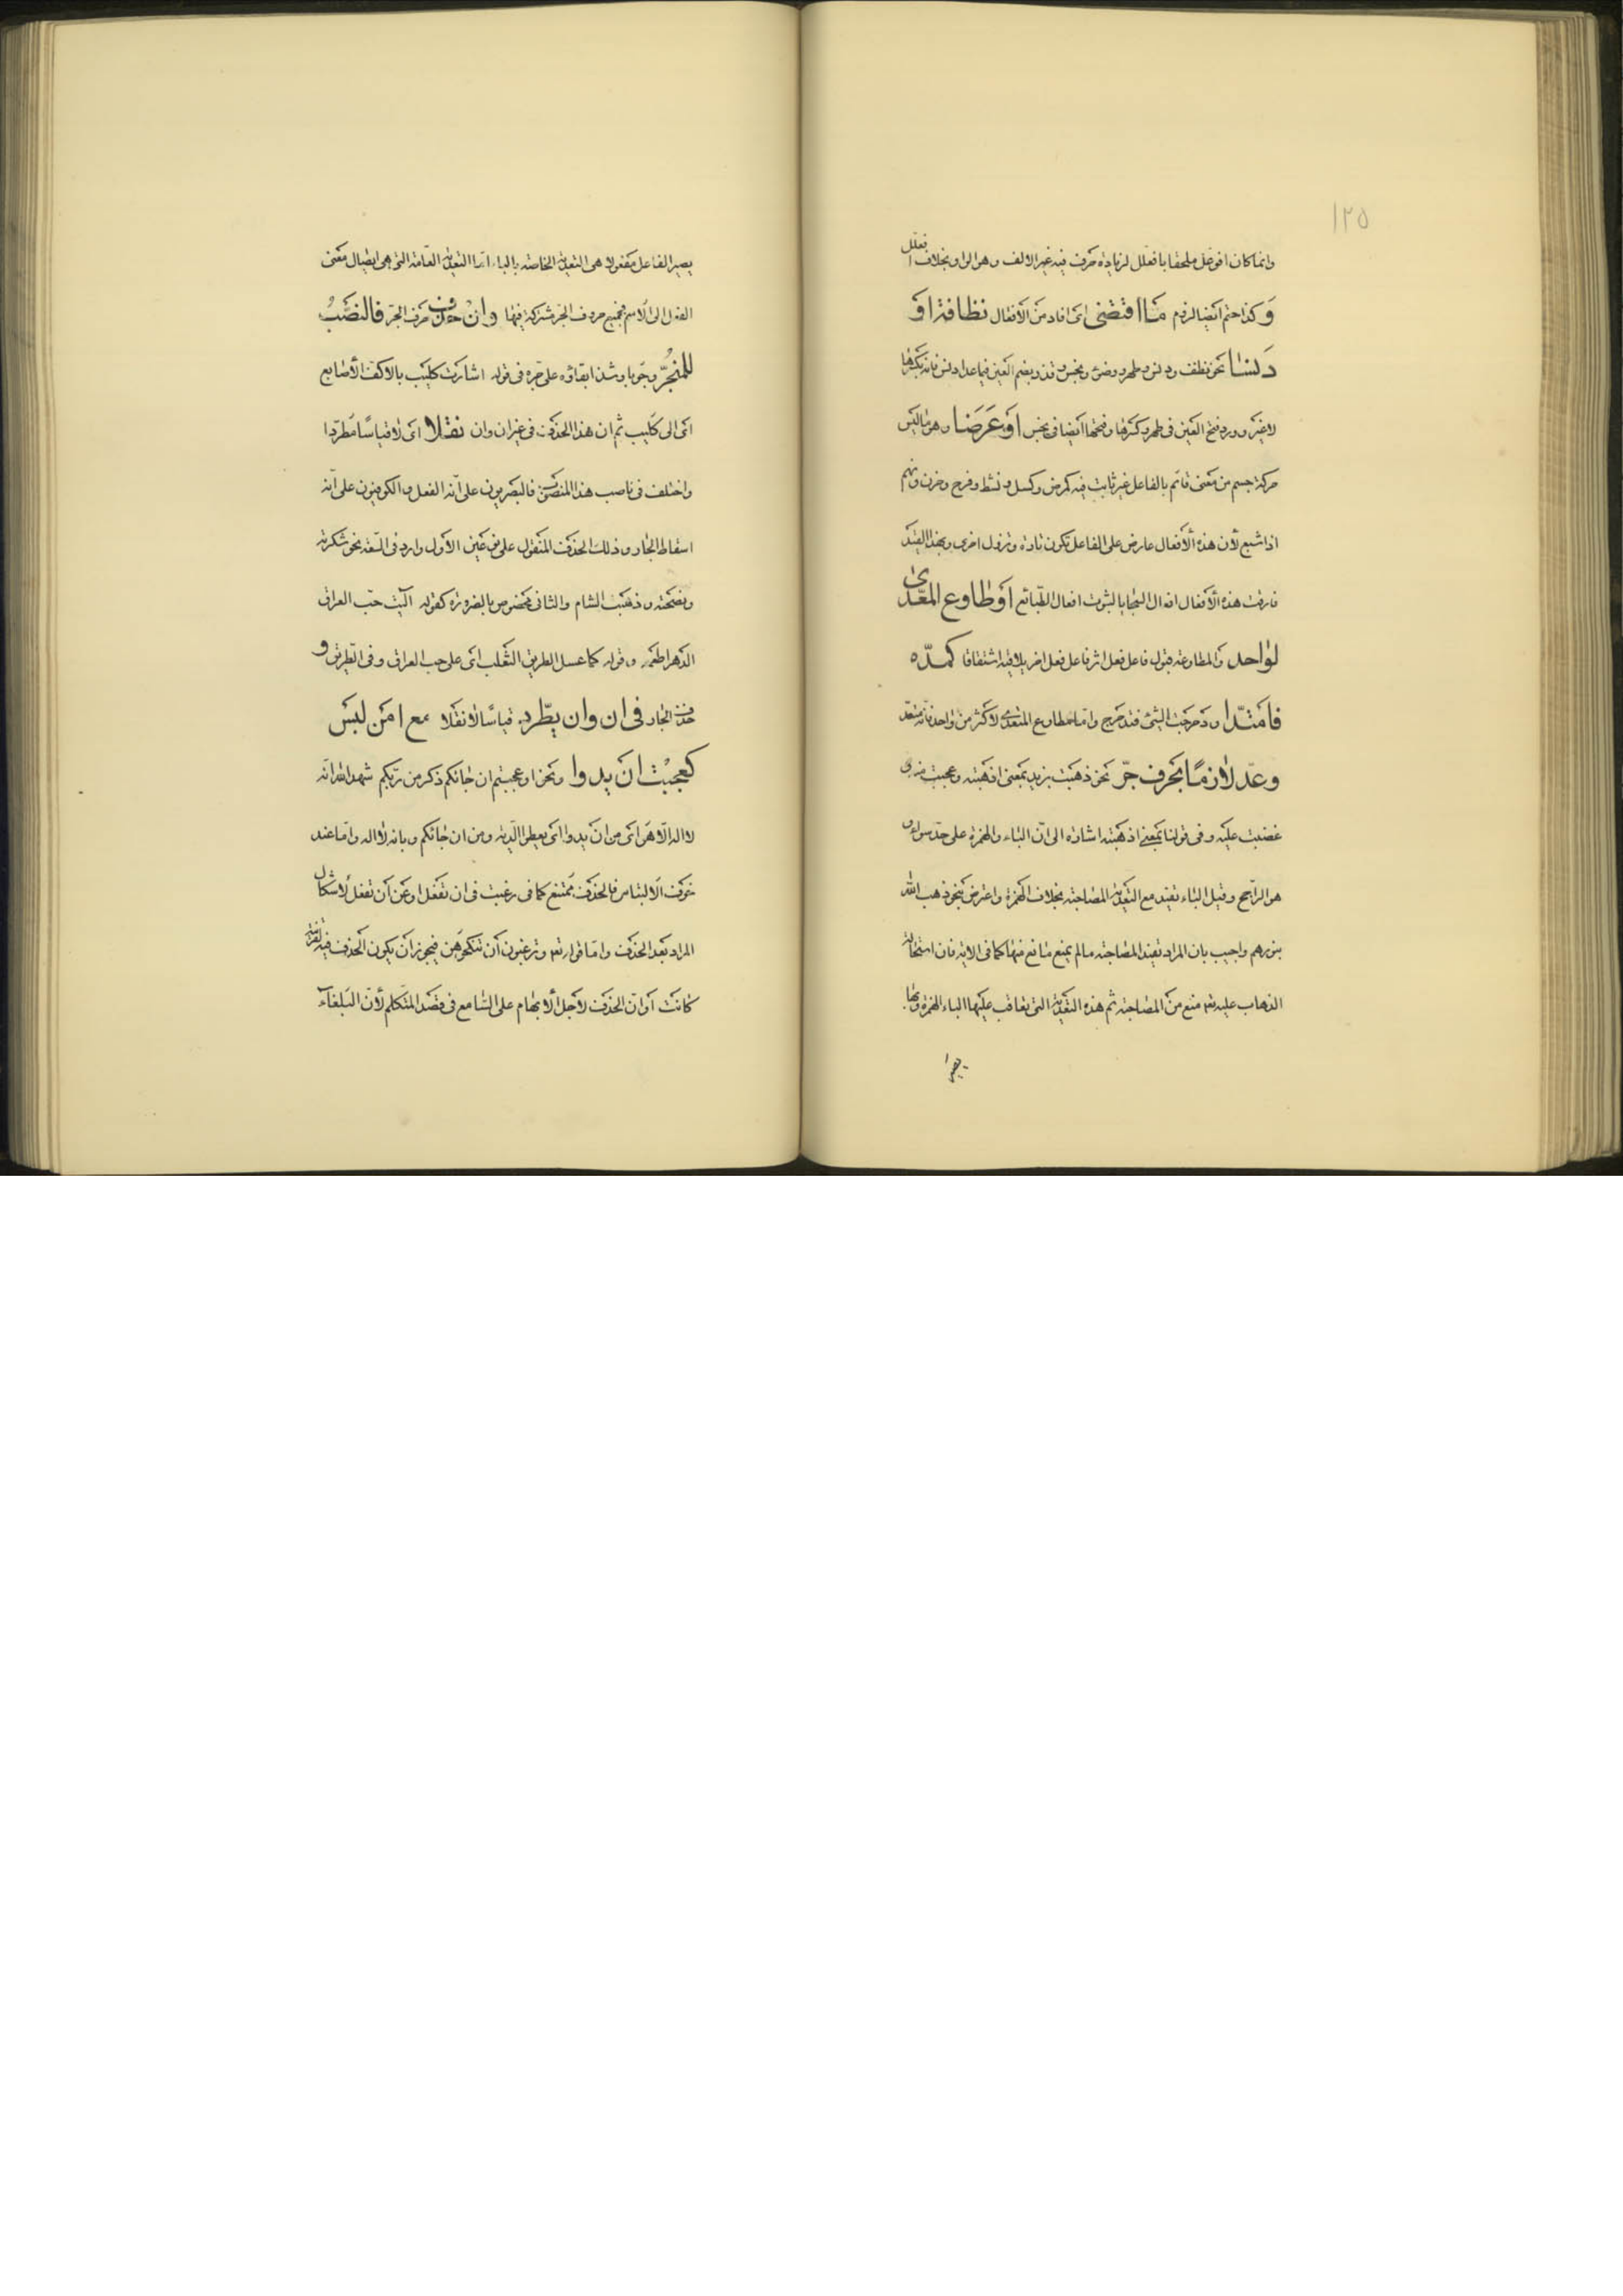 ١٢٥
وانما كان افوعل ملحقا بافعلل لزيادة حرف فيه غير الالف وهو الواو بخلاف افعلل
وكذا حتم ايضا لزوم ما اقتضى اى افاد من الأفعال نظافة او
دنسا نحو نظف ودنس وطهر ووضؤ ونجس وقذر بضم العين فيما عدا دنس فانه بكسرها
لا غير وورد فتح العين فى طهر وكسرها وفتحها ايضا فى نجس او عرضا وهو ما ليس
حركة جسم من معنى قائم بالفاعل غير ثابت فيه كمرض وكسل ونشط وفرح وحزن ونهم
اذا شبع لأن هذه الأفعال عارض على الفاعل تكون تارة وتزول اخرى وبهذا القيد
فارقت هذه الأفعال افعال السجايا بالثبوت افعال الطبائع او طاوع المعدّى
لواحد والمطاوعة قبول فاعل فعل اثر فاعل فعل اخر يلاقيه اشتقاقا كمدّه
فامتدّا ودحرجت الشئ فتدحرج واما مطاوع المتعدى لاكثر من واحد فانه متعد
وعدّ لازمًا بحرف جرّ نحو ذهبت بزيد بمعنى اذهبته وعجبت منه و
غضبت عليه وفى قولنا بمعنى اذهبته اشارة الى ان الباء والهمزة على حد سواء و
هو الراجح وقيل الباء تفيد مع التعدية المصاحبة بخلاف الهمزة واعترض بنحو ذهب الله
بنورهم واجيب بان المراد تفيد المصاحبة ما لم يمنع مانع منها كما فى الاية فان استحالة
الذهاب عليه تع منع من المصاحبة ثم هذه التعدية التى تعاقب عليها الباء الهمزة وبها
يصير
يصير الفاعل مفعولا هى التعدية الخاصة بالباء اما التعدية العامة التى هى ايصال معنى
الفعل الى الاسم فجميع حروف الجر مشتركة فيها وان حذف حرف الجر فالنصب
للمنجرّ وجوبا وشذ ابقاؤه على جره فى قوله اشارت كليب بالاكف الأصابع
اى الى كليب ثم ان هذا الحذف فى غير ان وان نقلا اى لا قياسًا مطردا
واختلف فى ناصب هذا المنصوب فالبصريون على انه الفعل والكوفيون على انه
اسقاط الجار وذلك الحذف المنقول على نوعين الأول وارد فى السعة نحو شكرته
ونصحته وذهبت الشام والثانى مخصوص بالضرورة كقوله آليت حب العراق
الدهر اطعمه وقوله كما عسل الطريق الثعلب اى على حب العراق وفى الطريق و
حذف الجار فى ان وان يطّرد قياسًا لا نقلا مع امن لبس
كعجبت ان يدوا ونحو اوعجبتم ان جائكم ذكر من ربكم شهد الله انه
لا اله الا هو اى من ان يدوا اى يعطوا الدية ومن ان جائكم وبانه لا اله واما عند
خوف الالتباس فالحذف ممتنع كما فى رغبت فى ان تفعل او عن ان تفعل لأشكال
المراد بعد الحذف واما قوله تع وترغبون ان تنكحوهن فيجوز ان يكون الحذف فيه لقرينة
كانت او ان الحذف لأجل الأبهام على السامع فى قصد المتكلم لأن البلغاء